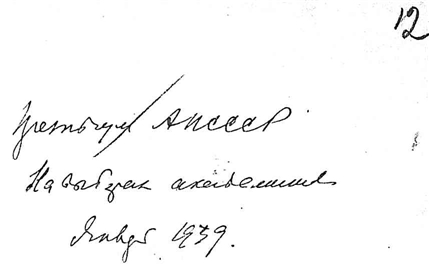 12
АН СССР
На выборах академиков
Январь 1939.